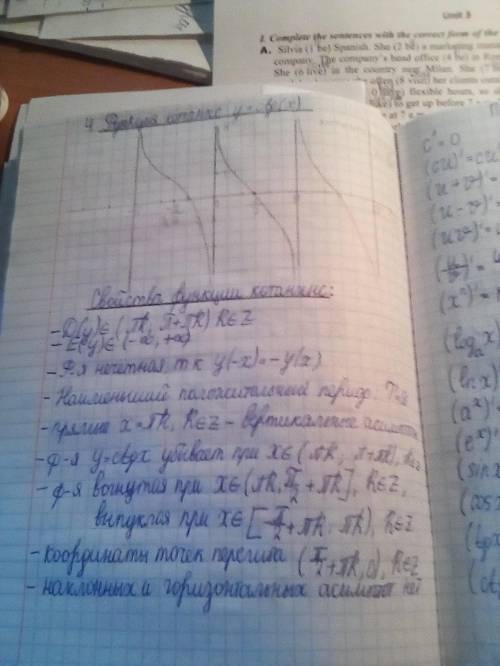 Unit 3
I. Complete the sentences with the correct form of the
A. Silvia (1 be) Spanish. She (2 be) a marketing
company. The company's head office (4 be) in
She (6 live) in the country near Milan. She (7
(8 visit) her clients
flexible hours, so
to get up before 7
4. Функция котангенс y = ctg(x)
Свойства функции котангенс:
- D(y)∈(πk, π+πk) k∈Z
- E(y)∈(-∞, +∞)
- Ф-я нечетная т.к y(-x)=-y(x)
- Наименьший положительный период. T=π
- прямые x=πk, k∈Z - вертикальные асимпт
- Ф-я y=ctgx убывает при x∈(πk; π+πk), k∈Z
- ф-я вогнутая при x∈(πk, π/2+πk], k∈Z,
выпуклая при x∈[-π/2+πk, πk), k∈Z
- координаты точек перегиба (π/2+πk, 0), k∈Z
- наклонных и горизонтальных асимптот нет
c'=0
(cu)'=cu'
(u+v)'=
(u-v)'=
(uv)'=
(u/v)'=
(xⁿ)'=
(logₐx)'
(ln x)'
(aˣ)'=
(eˣ)'=
(sin x
(cos x
(tgx
(ct